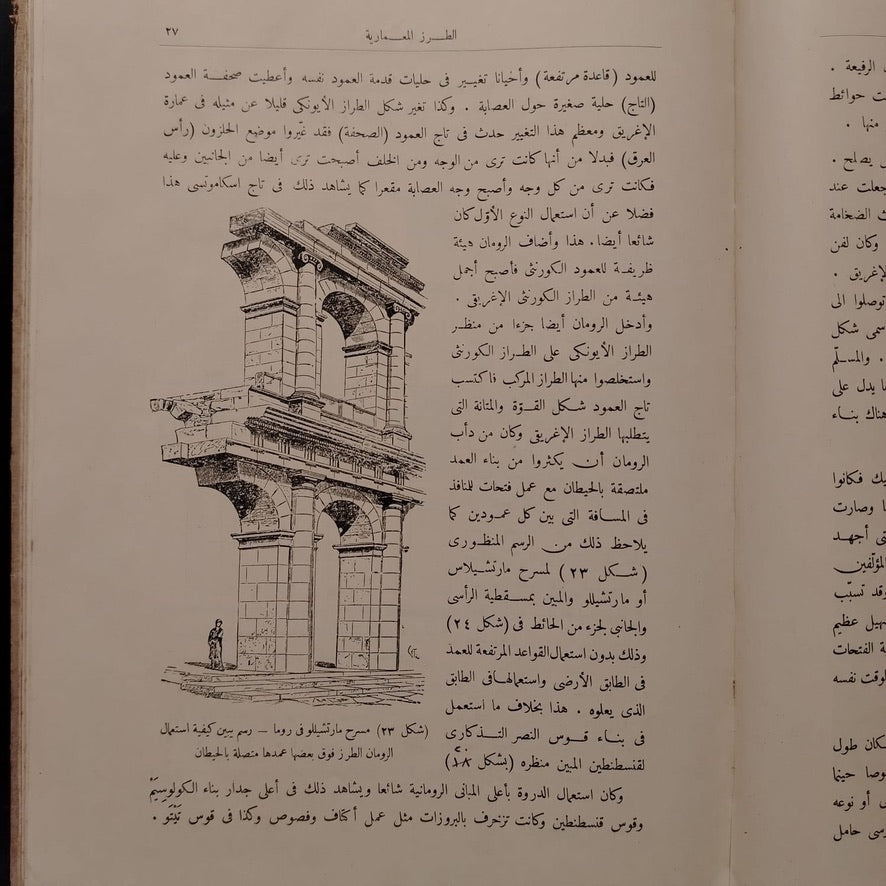 الطرز المعمارية
٢٧
للعمود (قاعدة مرتفعة) وأحيانا تغيير فى حليات قدمة العمود نفسه وأعطيت صحفة العمود
(التاج) حلية صغيرة حول العصابة . وكذا تغير شكل الطراز الأيونكى قليلا عن مثيله فى عمارة
الإغريق ومعظم هذا التغيير حدث فى تاج العمود (الصحفة) فقد غيّروا موضع الحلزون (رأس
العرق) فبدلا من أنها كانت ترى من الوجه ومن الخلف أصبحت ترى أيضا من الجانبين وعليه
فكانت ترى من كل وجه وأصبح وجه العصابة مقعرا كما يشاهد ذلك فى تاج اسكاموتسى هذا
فضلا عن أن استعمال النوع الأوّل كان
شائعا أيضا . هذا وأضاف الرومان هيئة
ظريفة للعمود الكورنثى فأصبح أجمل
هيئة من الطراز الكورنثى الإغريقى .
وأدخل الرومان أيضا جزءا من منظر
الطراز الأيونكى على الطراز الكورنثى
واستخلصوا منها الطراز المركب فاكتسب
تاج العمود شكل القوّة والمتانة التى
يتطلبها الطراز الإغريقى وكان من دأب
الرومان أن يكثروا من بناء العمد
ملتصقة بالحيطان مع عمل فتحات للمنافذ
فى المسافة التى بين كل عمودين كما
يلاحظ ذلك من الرسم المنظورى
(شكل ٢٣) لمسرح مارتشيلاس
أو مارتشيللو والمبين بمسقطية الرأسى
والجانبى لجزء من الحائط فى (شكل ٢٤)
وذلك بدون استعمال القواعد المرتفعة للعمد
فى الطابق الأرضى واستعمالها فى الطابق
الذى يعلوه . هذا بخلاف ما استعمل
فى بناء قوس النصر التذكارى
لقنسطنطين المبين منظره (بشكل ١٨)
(شكل ٢٣) مسرح مارتشيللو فى روما — رسم يبين كيفية استعمال
الرومان الطرز فوق بعضها عمدها متصلة بالحيطان
وكان استعمال الدروة بأعلى المبانى الرومانية شائعا ويشاهد ذلك فى أعلى جدار بناء الكولوسيّم
وقوس قنسطنطين وكانت تزخرف بالبروزات مثل عمل أكتاف وفصوص وكذا فى قوس تيتو .
الرفيعة .
ت حوائط
منها .
يصلح .
جعلت عند
الضخامة
وكان لفن
لإغريق .
توصلوا الى
سمى شكل
. والمسلّم
ما يدل على
هناك بناء
يك فكانوا
ا وصارت
تى أجهد
المؤلّفين
وقد تسبّب
هيل عظيم
ة الفتحات
لوقت نفسه
كان طول
وصا حينما
أو نوعه
رسى حامل